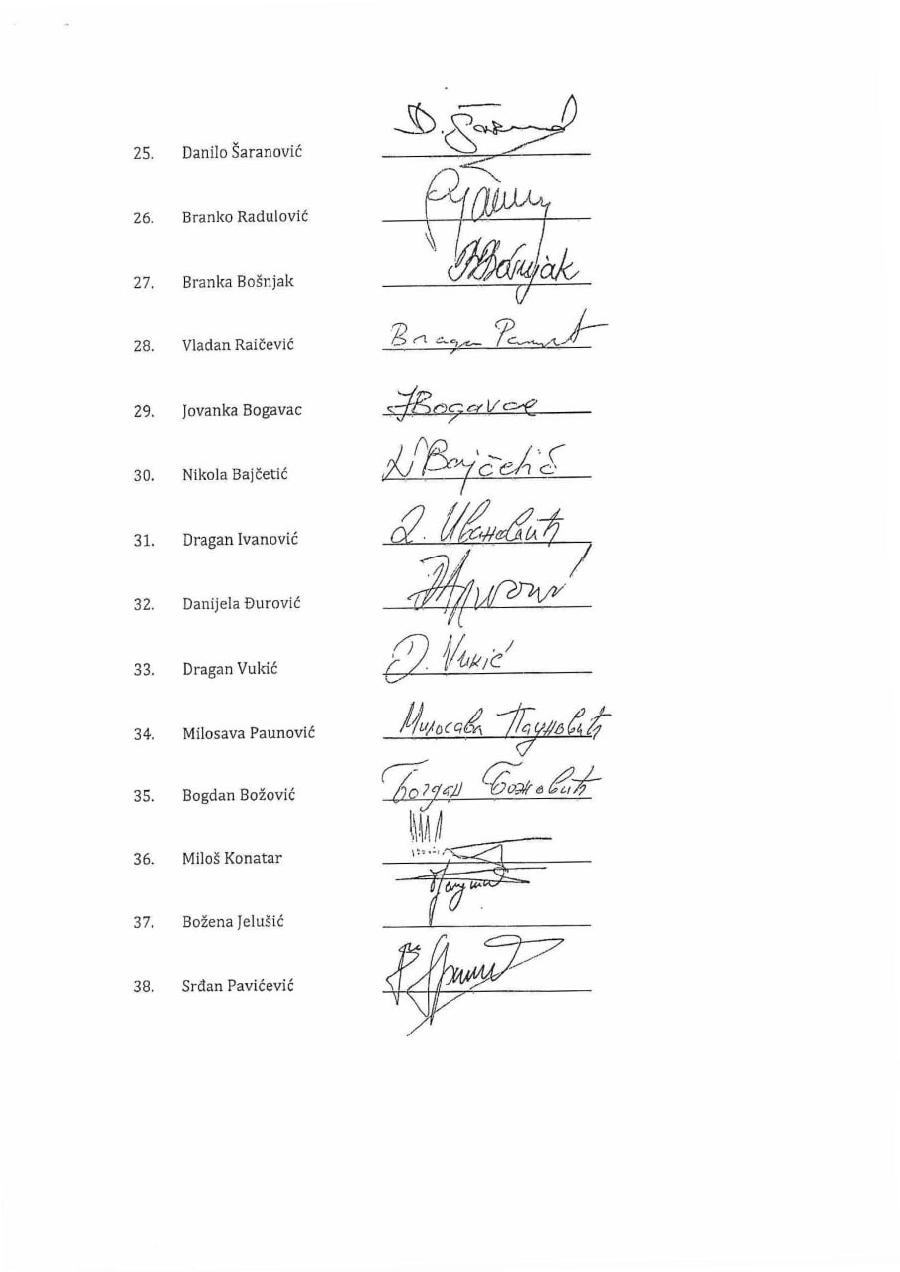 25. Danilo Šaranović D.
26. Branko Radulović
27. Branka Bošnjak
28. Vladan Raičević
29. Jovanka Bogavac JBogavac
30. Nikola Bajčetić N Bajčetić
31. Dragan Ivanović Д. Ивановић
32. Danijela Đurović
33. Dragan Vukić D. Vukić
34. Milosava Paunović Милосава Пауновић
35. Bogdan Božović Богдан Божовић
36. Miloš Konatar
37. Božena Jelušić
38. Srđan Pavićević